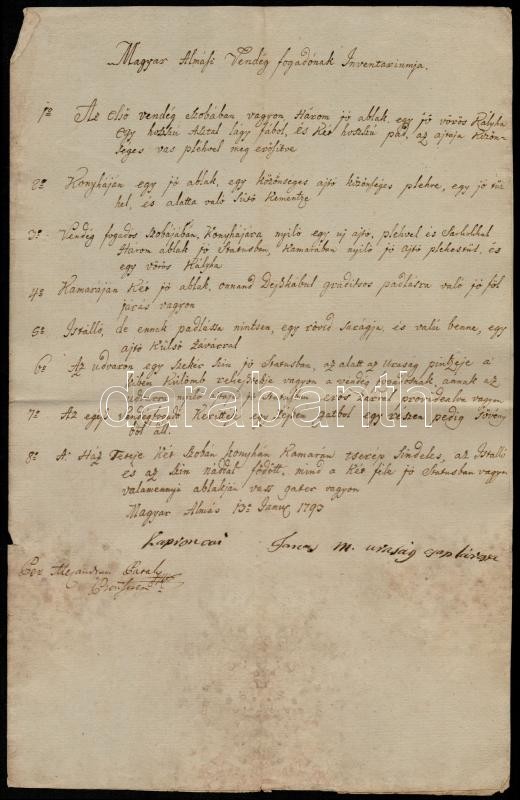 Magyar Almási Vendég fogadónak Inventariumja.
1º Az első vendég szobában vagyon Három jó ablak, egy jó vörös Kályha
egy hosszú Asztal lágy fából, és Két hosszú pad, az ajtaja közön-
séges vas plehvel meg erősitve
2º Konyháján egy jó ablak, egy közönseges ajtó közönséges plehre, egy jó tűz
hel, és alatta való sütő kementze
3º Vendég fogadós szobájában, Konyhájára nyiló egy uj ajtó, plehvel és Sarkokkal
Három ablak jó Statusban, Kamarában nyiló jó ajtó plehestűl, és
egy vörös Kályha
4º Kamaráján Két jó ablak, onnand Deszkábul graditsos padlásra való jó föl
járás vagyon
5º Istálló, de ennek padlássa nintsen, egy rövid Saragja, és valú benne, egy
ajtó Külső závárral
6º Az udvaron egy Szeker Szin jó Statusban, az alatt az Uraság pintzéje a
vendég fogadósnak, annak az
udvarra nyiló
7º Az egész Vendegfogadó
ből áll.
8º A Ház Teteje Két szobán konyhán Kamarán tserep sindeles, az Istálló
és az szin náddal födött, mind a Két féle jó Statusban vagyon
valamennyi ablakján vass gater vagyon
Magyar Almás 13º Janur 1793
Kapronczai Jancsi m. uraság
Per Alexandrum
darabanth